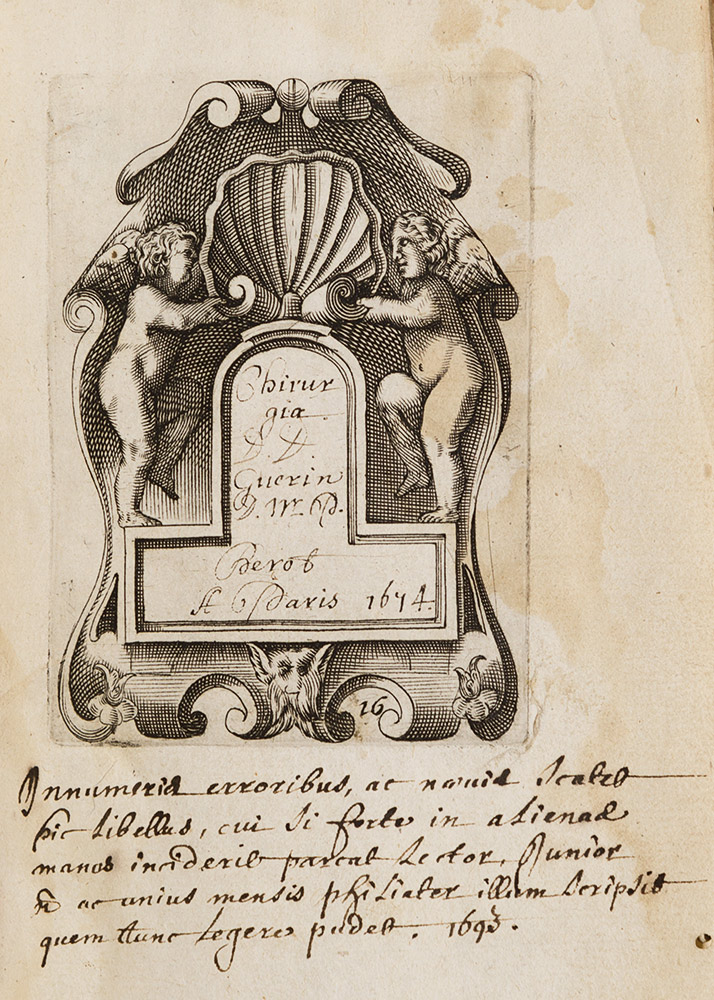 Chirur
gia
D. D.
Guerin
D. M. P.
Perot
A Paris 1674.
16
Innumeris erroribus, ac nævis scatet
hic libellus, cui si forte in alienas
manus inciderit parcat lector, Junior
n̄ ac unius mensis philiater illum scripsit
quem tunc legere pudet. 1693.